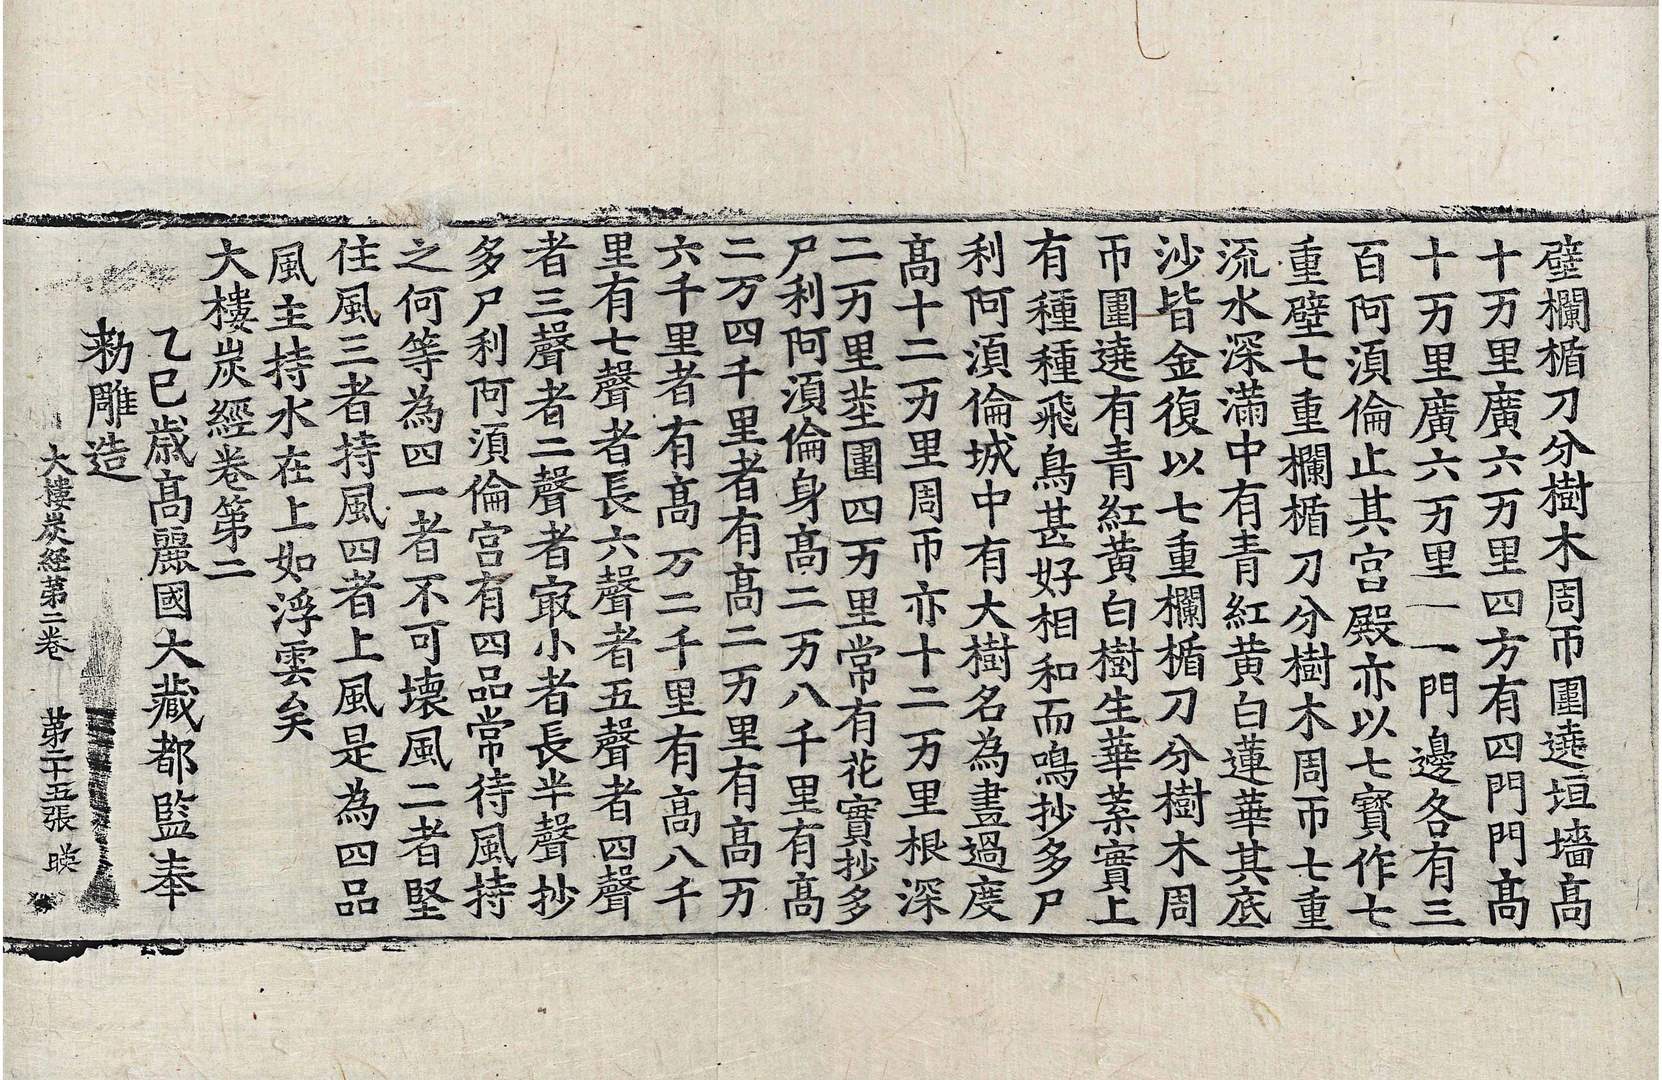 壁欄楯刀分樹木周帀圍遶垣墻髙
十万里廣六万里四方有四門門髙
十万里廣六万里一一門邊各有三
百阿湏倫止其宮殿亦以七寶作七
重壁七重欄楯刀分樹木周帀七重
流水深滿中有青紅黄白蓮華其底
沙皆金復以七重欄楯刀分樹木周
帀圍遶有青紅黄白樹生華葉實上
有種種飛鳥甚好相和而鳴抄多尸
利阿湏倫城中有大樹名為晝過度
髙十二万里周帀亦十二万里根深
二万里莖圍四万里常有花實抄多
尸利阿湏倫身髙二万八千里有髙
二万四千里者有髙二万里有髙万
六千里者有髙万二千里有髙八千
里有七聲者長六聲者五聲者四聲
者三聲者二聲者㝡小者長半聲抄
多尸利阿湏倫宮有四品常待風持
之何等為四一者不可壞風二者堅
住風三者持風四者上風是為四品
風主持水在上如浮雲矣
大樓炭經卷第二
乙巳歲高麗國大藏都監奉
勑雕造
大樓炭經第二卷 第二十五張 暎